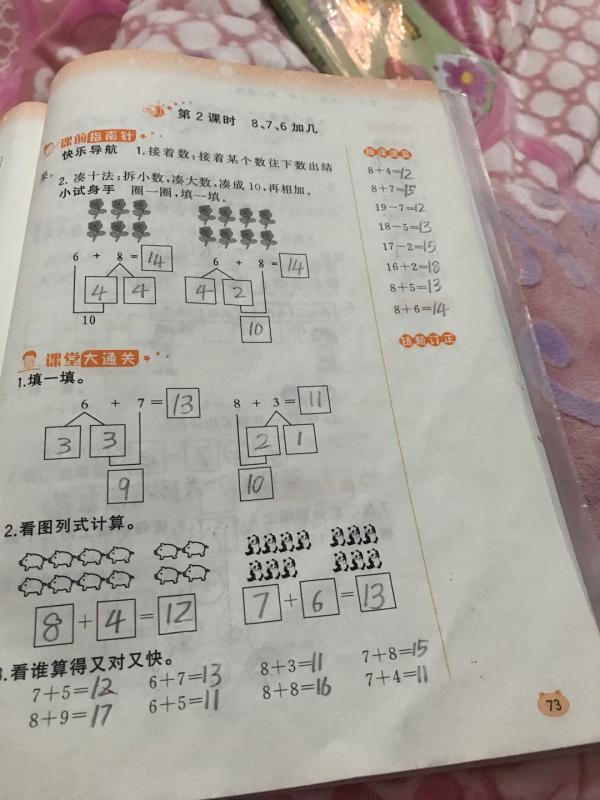 第2课时 8、7、6加几
课前指南针
快乐导航 1.接着数:接着某个数往下数出结
果。
2.凑十法:拆小数,凑大数,凑成10,再相加。
小试身手 圈一圈,填一填。
6 + 8 = 14
4 4
10
6 + 8 = 14
4 2
10
课堂大通关
1.填一填。
6 + 7 = 13
3 3
9
8 + 3 = 11
2 1
10
2.看图列式计算。
8 + 4 = 12
7 + 6 = 13
3.看谁算得又对又快。
7+5=12 6+7=13 8+3=11 7+8=15
8+9=17 6+5=11 8+8=16 7+4=11
8+4=12
8+7=15
19-7=12
18-5=13
17-2=15
16+2=18
8+5=13
8+6=14
错题订正
73